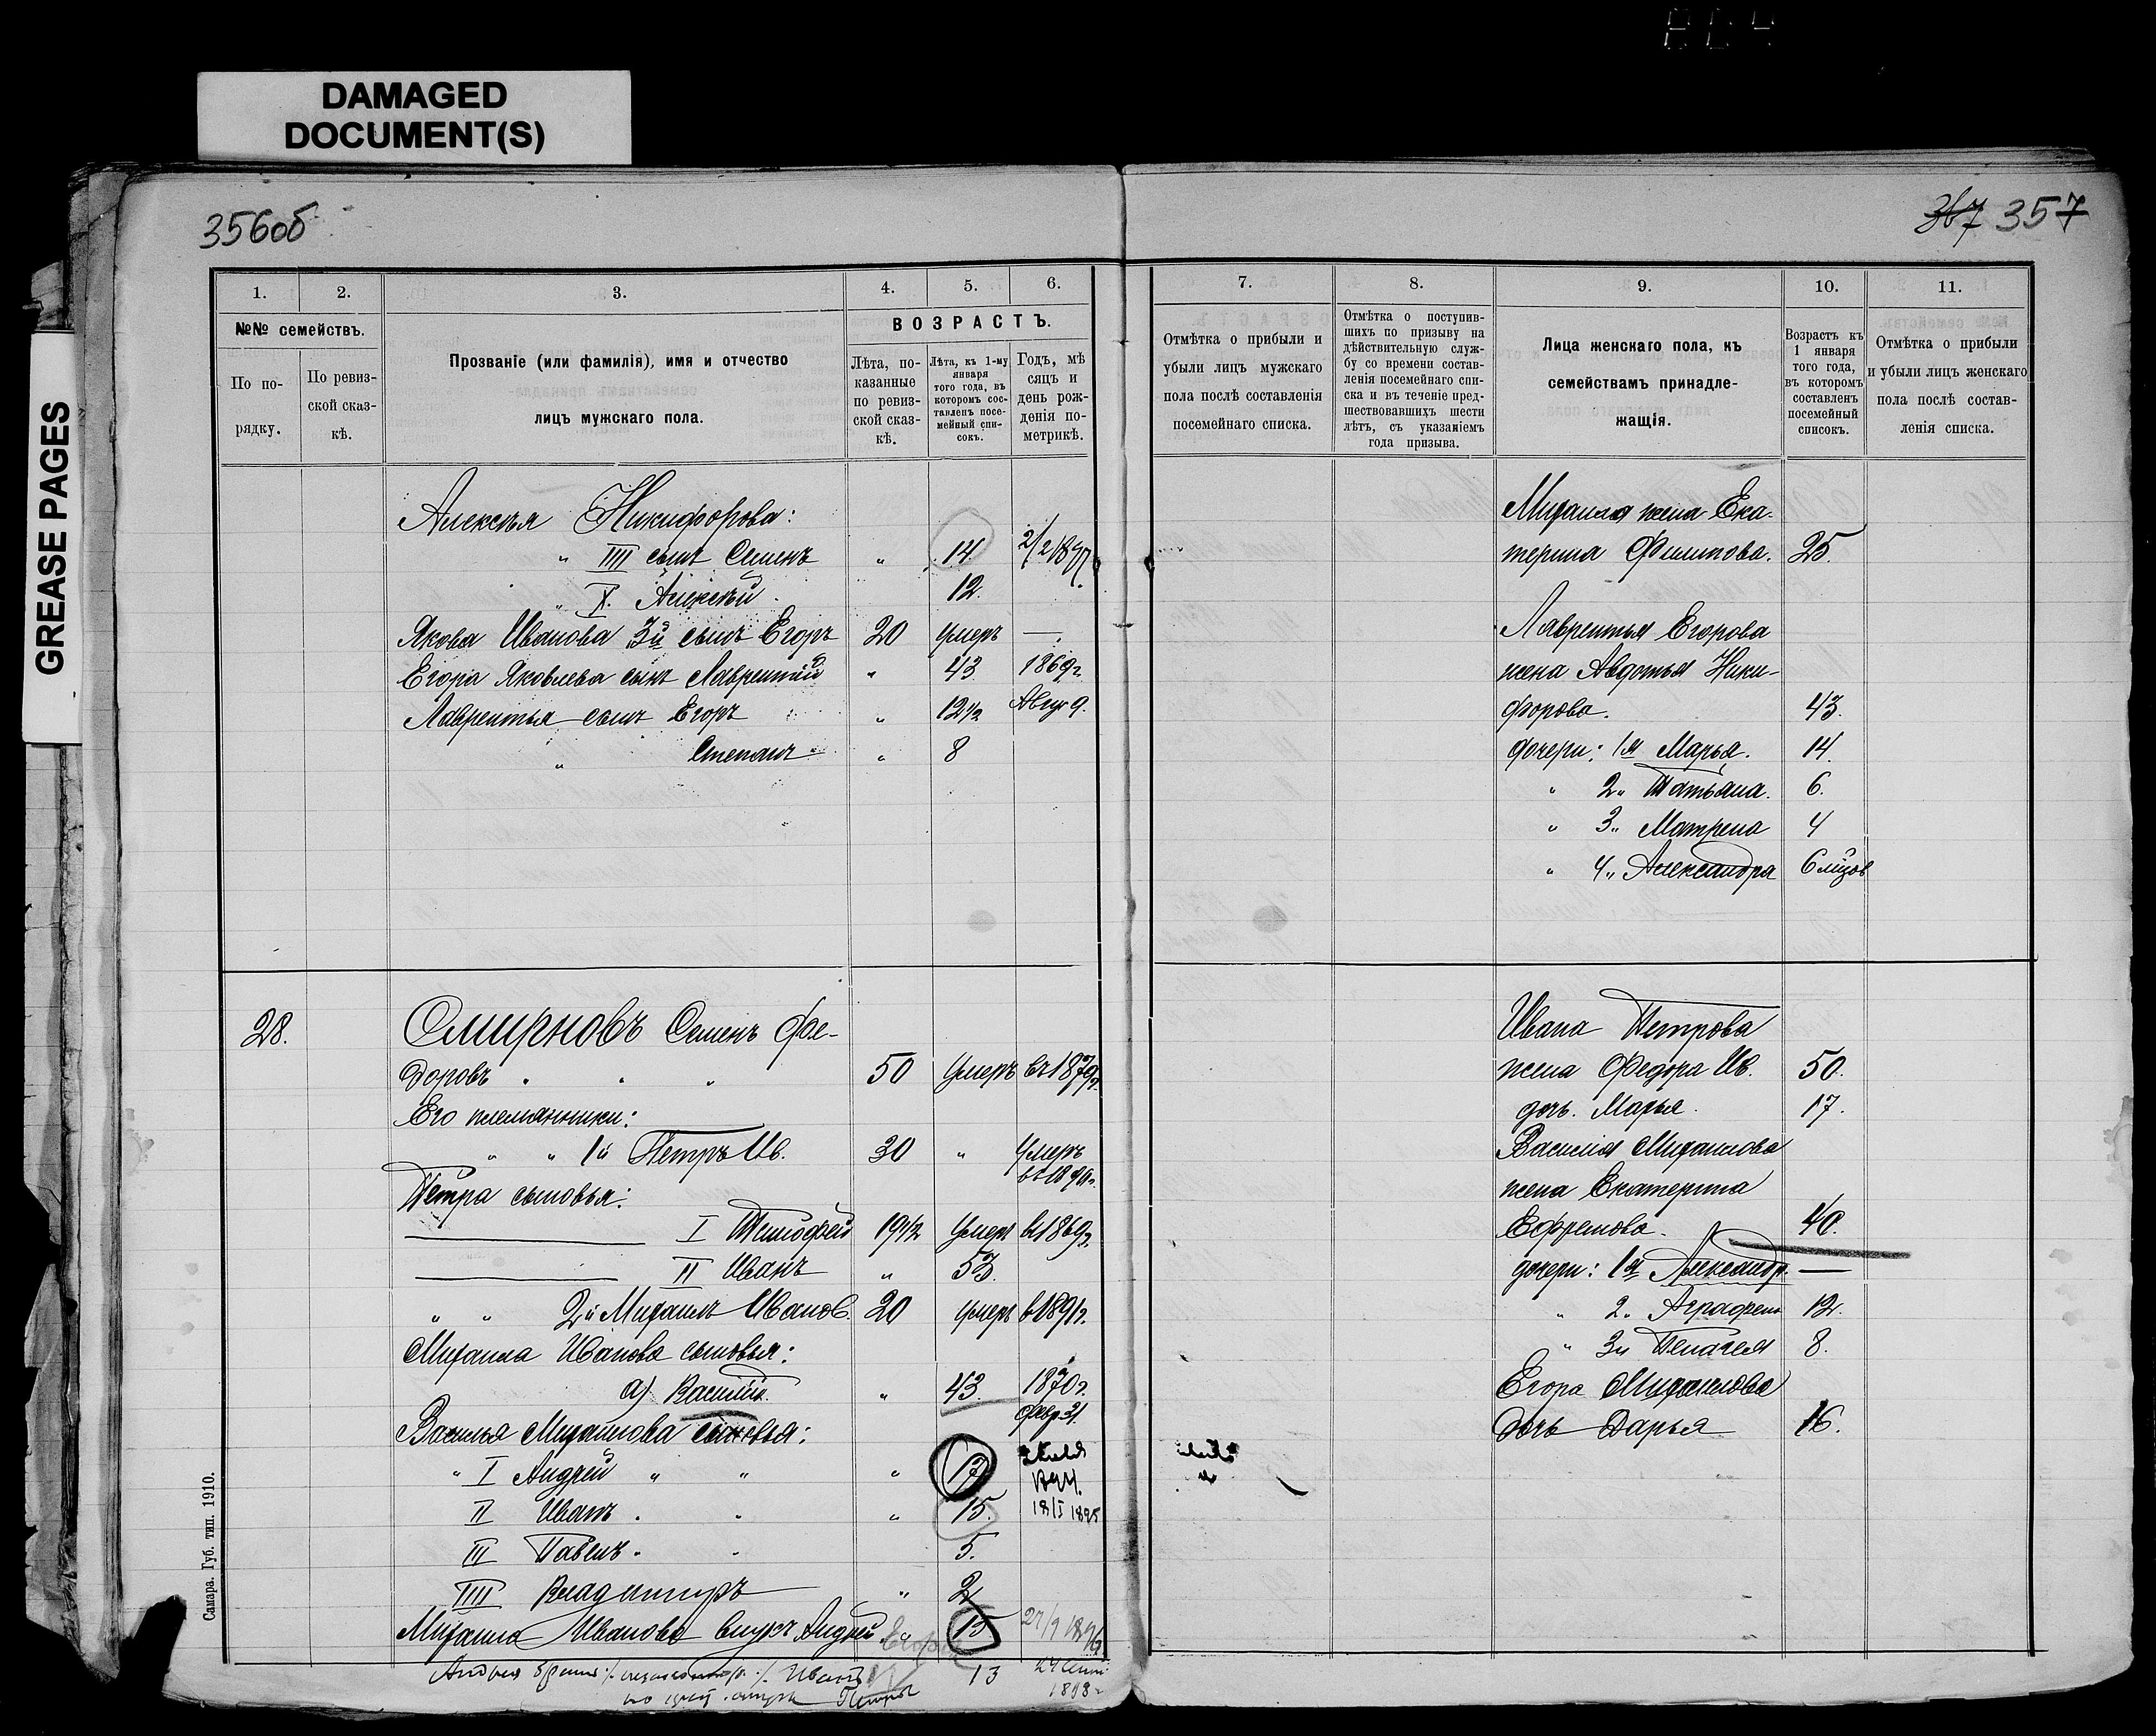 DAMAGED
DOCUMENT(S)
GREASE PAGES
356об
357
1. 2. 3. 4. 5. 6.
№№ семействъ.
По по-
рядку.
По ревиз-
ской сказ-
кѣ.
Прозваніе (или фамилія), имя и отчество
лицъ мужскаго пола.
ВОЗРАСТЪ.
Лѣта, по-
казанные
по ревиз-
ской сказ-
кѣ.
Лѣта, къ 1-му
января
того года, въ
которомъ сос-
тавленъ посе-
мейный спи-
сокъ.
Годъ, мѣ
сяцъ и
день рож-
денія по-
метрикѣ.
Алексѣя Никифорова:
" IIII сынъ Семенъ " 14
" X. Алексѣй 12.
Якова Иванова 3й сынъ Егоръ 20 умеръ —
Егора Яковлева сынъ Лаврентій " 43 1869г.
Лаврентья сынъ Егоръ " 12½ Авгу 9.
" Степанъ " 8
28. Смирновъ Семенъ Фе-
доровъ " " " 50 умеръ въ 1879г.
Его племянники:
" " 1й Петръ Ив. 30 " умеръ
Петра сыновья:
I Тимофей 19½ умеръ въ 1869г.
II Иванъ " 53.
" " 2й Михаилъ Иванов. 20 умеръ в 1891г.
Михаила Иванова сыновья:
а) Василій. " 43. 1870г.
февр 21.
Василья Михайлова сыновья:
" I Андрей " " " 17
II Иванъ " " " 15. 18/I 1895
III Павелъ " " 5.
IIII Владимиръ " 2
Михаила Иванова внукъ Андрей " Егоръ 15
Иванъ 13
Самара. Губ. тип. 1910.
7. 8. 9. 10. 11.
Отмѣтка о прибыли и
убыли лицъ мужскаго
пола послѣ составленія
посемейнаго списка.
Отмѣтка о поступив-
шихъ по призыву на
дѣйствительную служ-
бу со времени состав-
ленія посемейнаго спи-
ска и въ теченіе пред-
шествовавшихъ шести
лѣтъ, съ указаніемъ
года призыва.
Лица женскаго пола, къ
семействамъ принадле-
жащія.
Возрастъ къ
1 января
того года,
въ которомъ
составленъ
посемейный
списокъ.
Отмѣтка о прибыли
и убыли лицъ женскаго
пола послѣ состав-
ленія списка.
Михаила жена Ека-
терина Филипова. 25.
Лаврентья Егорова
жена Авдотья Ники-
форова. 43.
дочери: 1я Марья. 14.
" 2" Татьяна. 6.
" 3" Матрена 4
" 4" Александра 6 мѣцов
Ивана Петрова
жена Федора Ив. 50.
дочь. Марья. 17.
Василія Михаилова
жена Екатерина
Ефремова. 40.
дочери: 1я Александр. —
" 2" Аграфена 12.
" 3" Пелагея 8.
Егора Михаилова
дочь Дарья 16.